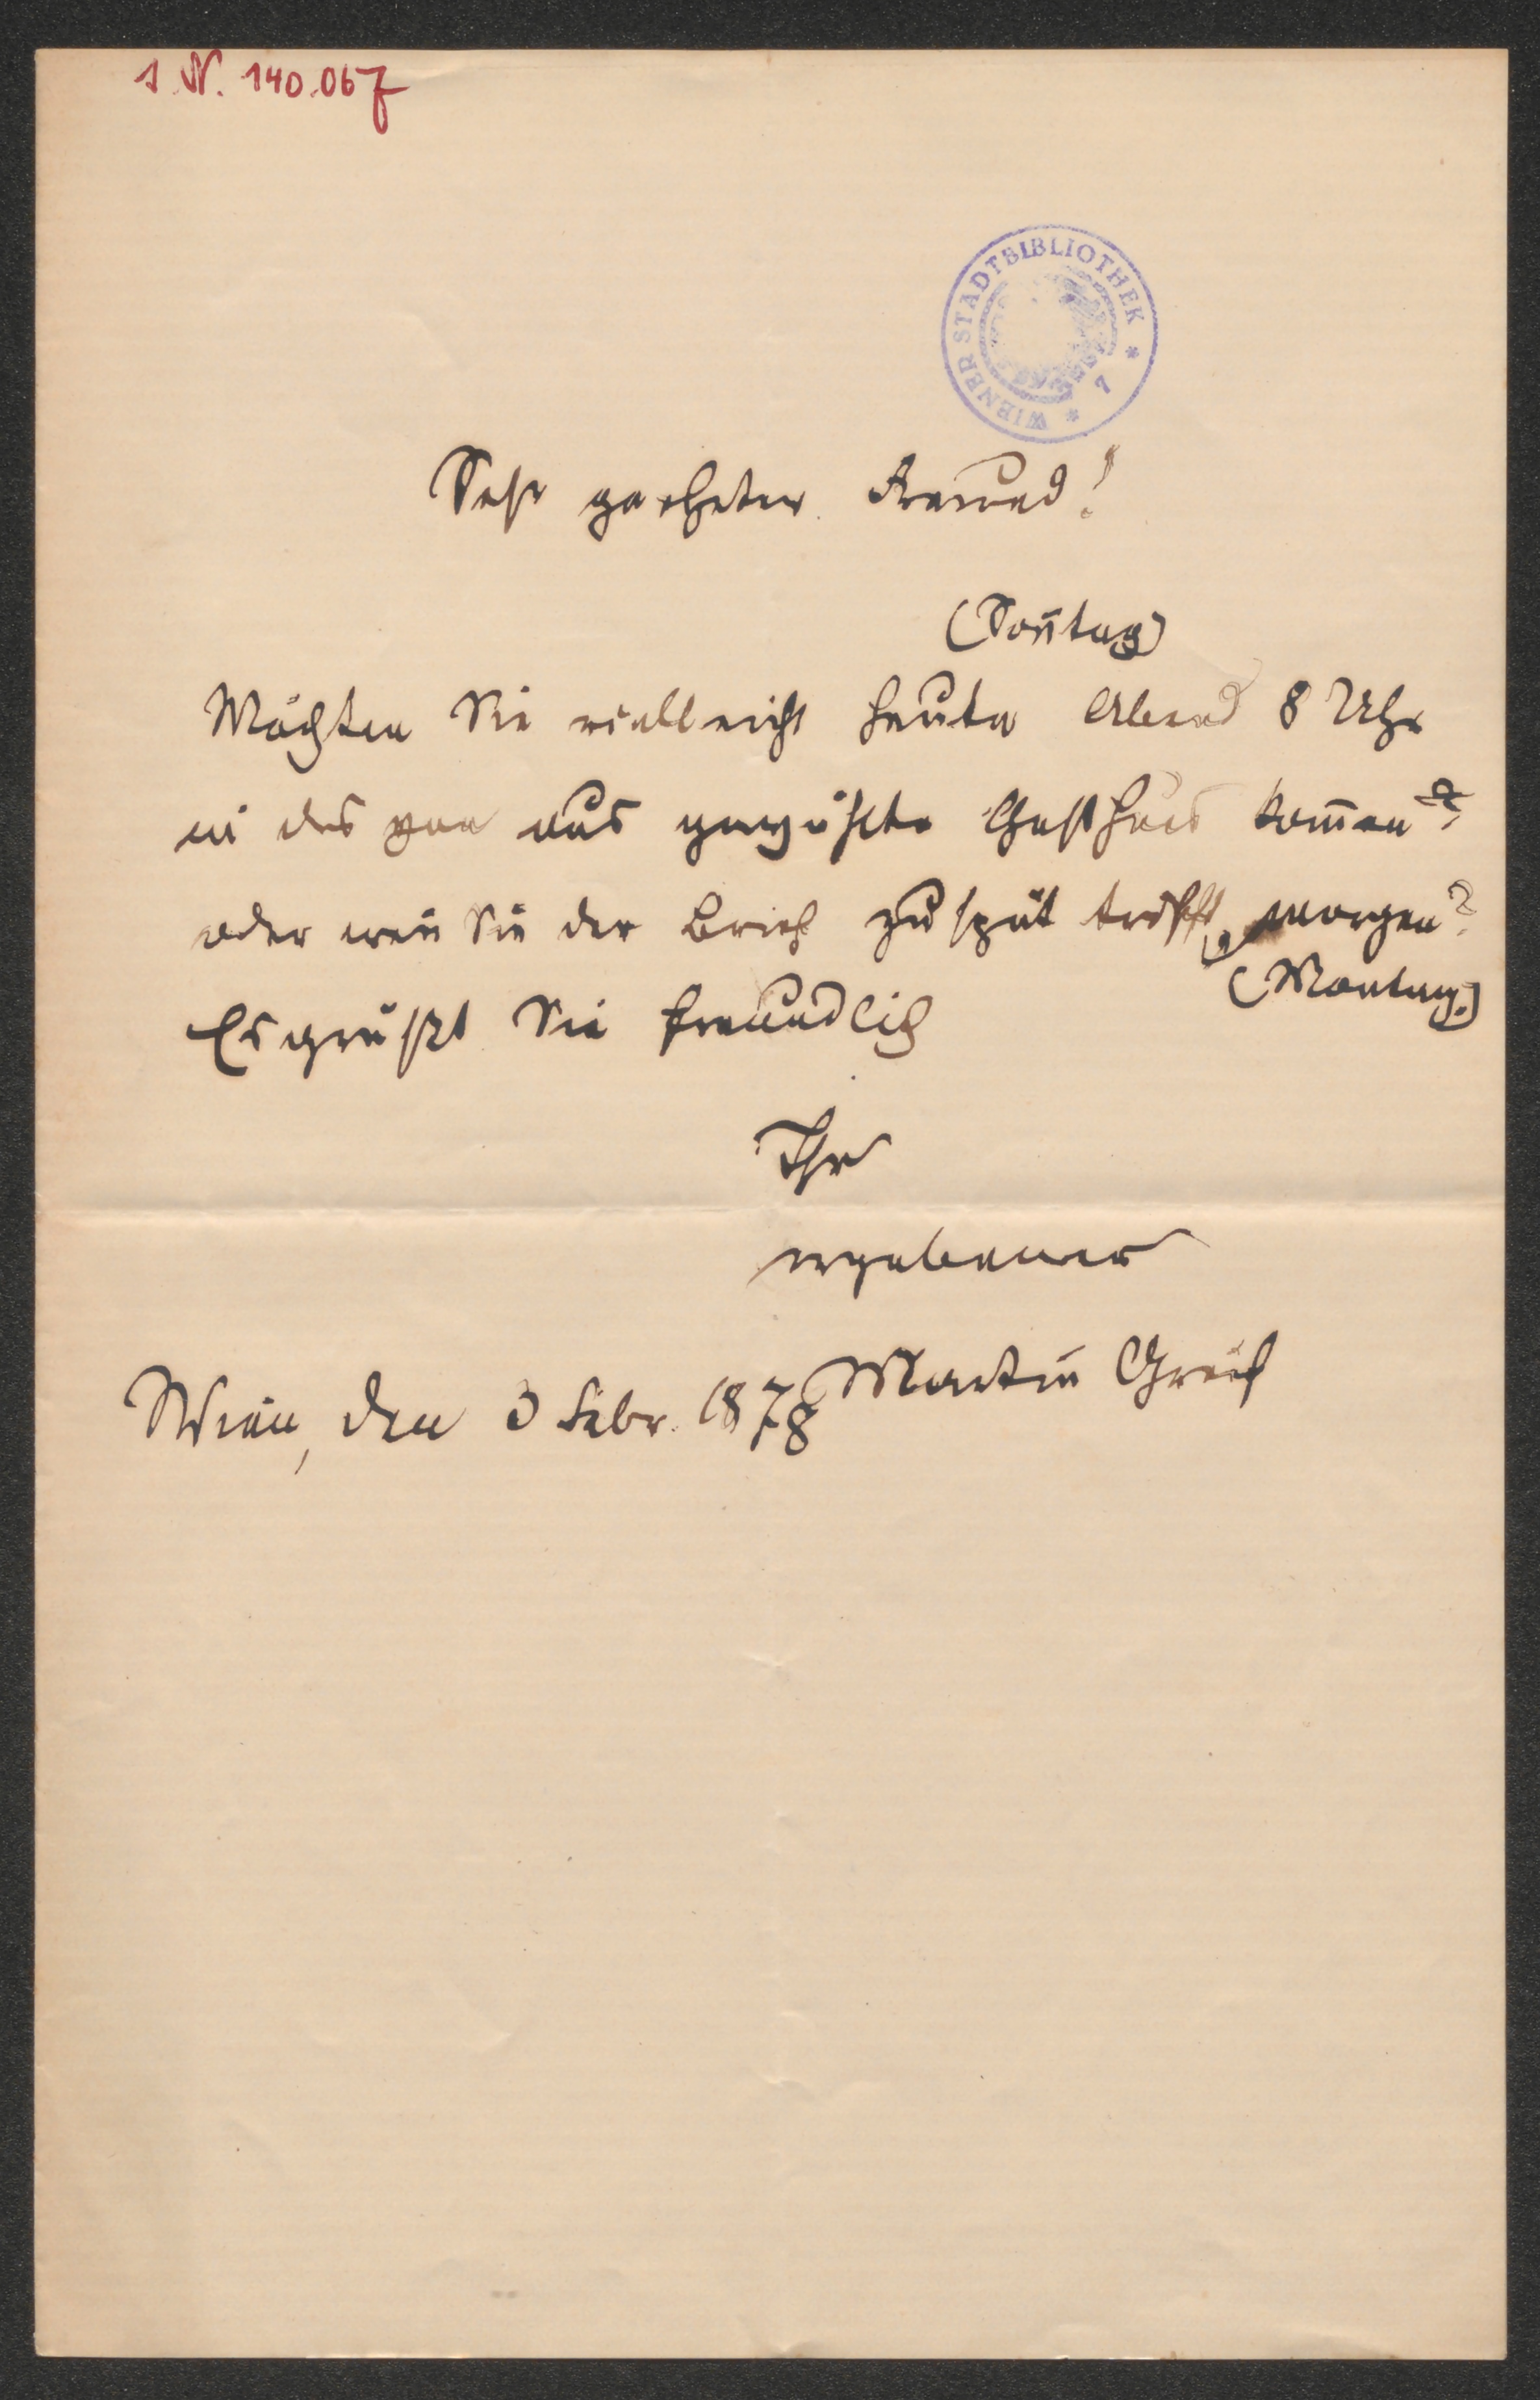 I. N. 140.067
WIENER STADTBIBLIOTHEK * 7 *
Sehr geehrter Freund!
(Soñtag)
Möchten Sie vielleicht heute Abend 8 Uhr
in das von uns Gasthaus kom̄en?
oder weñ Sie der Brief zu spät trifft, morgen?
(Montag.)
Es grüßt Sie freundlich
Ihr
ergebener
Martin Greif
Wien, den 3 Febr. 1878